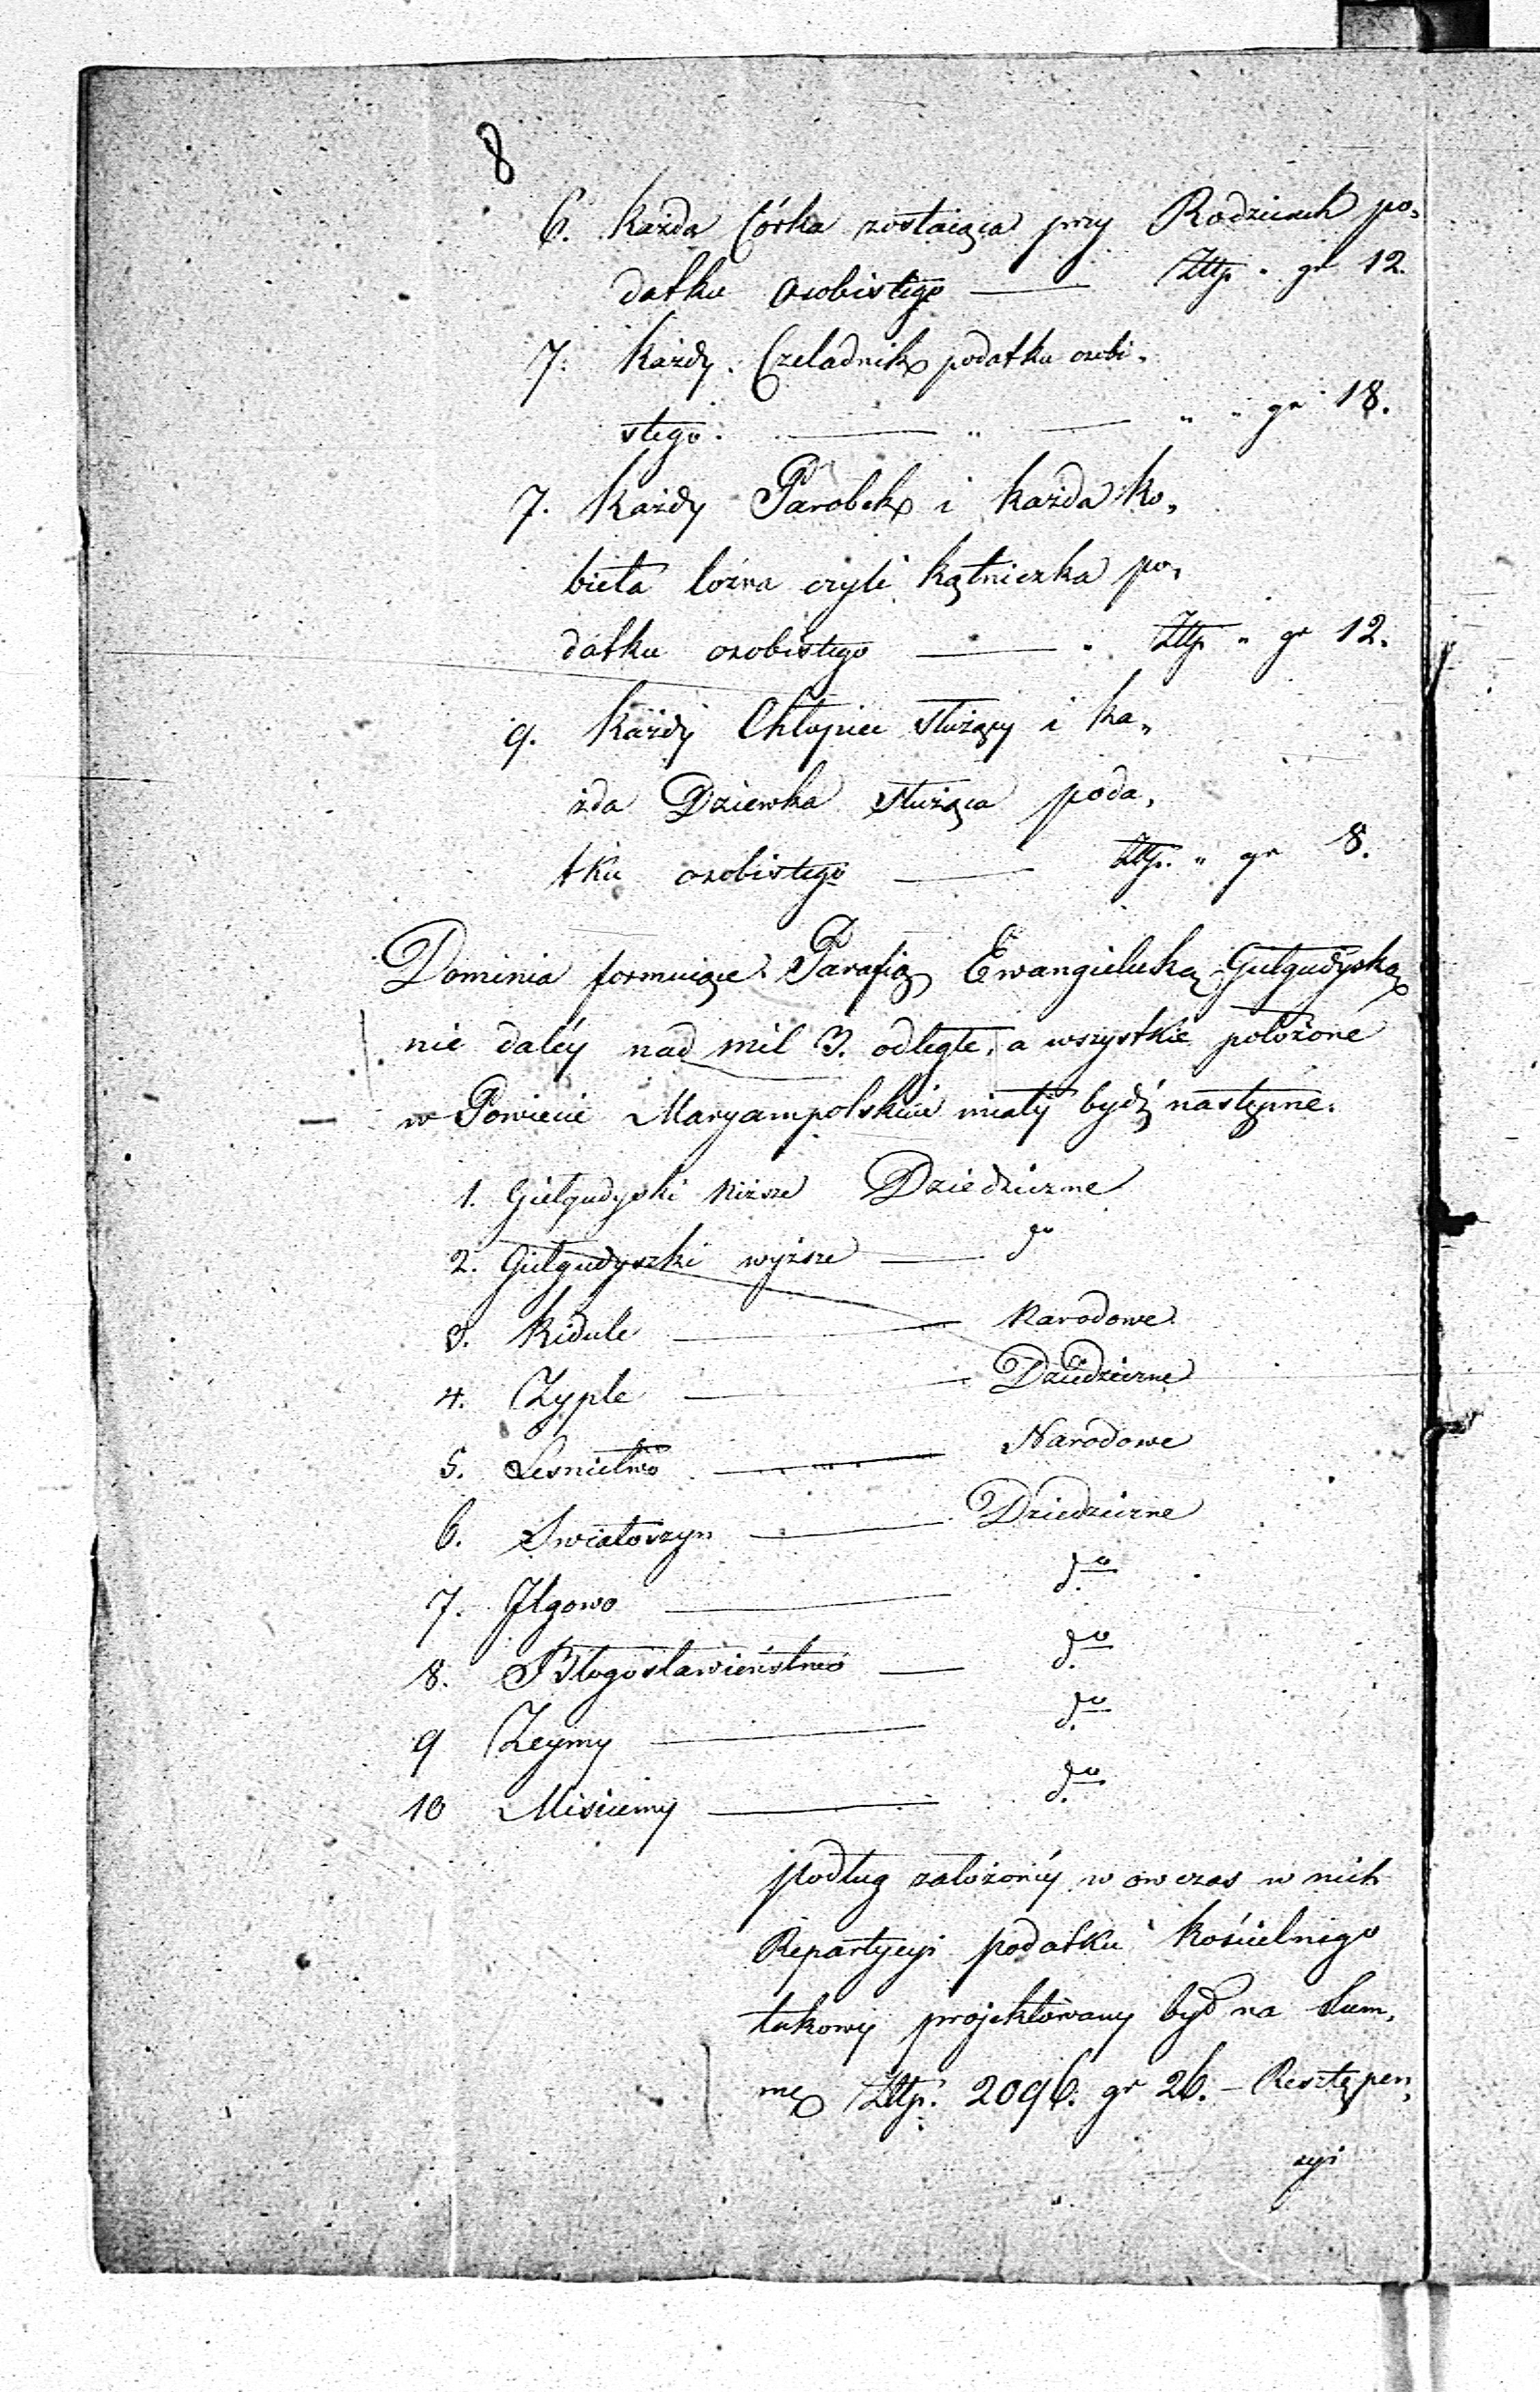 8
6. Każda Córka zostaiąca przy Rodzicach po„
datku osobistego — Złłp. „ gr 12.
7. Każdy Czeladnik podatku osobi„
stego. — „ — „ „ gr 18.
7. Każdy Parobek i każda ko„
bieta lozna czyli kątniczka po„
datku osobistego — „ Złłp „ gr 12.
9. Każdy Chłopiec służący i ka„
żda Dziewka służąca poda„
tku osobistego — Złłp. „ gr 8.
Dominia formuiące Parafią Ewangielicką Giełgudyską
nie daléy nad mil 3. odległe, a wszystkie położone
w Powiecie Maryampolskim miały bydź następne.
1. Giełgudyski niższe Dziedziczne
2. Giełgudyszki wyższe — do
3. Kidule — Narodowe
4. Zyple — Dziedziczne
5. Lesnictwo — Narodowe
6. Swiatoszyn — Dziedziczne
7. Ilgowo — do
8. Błogosławieństwo — do
9 Zeymy — do
10 Misiumy — do
podług założonéy w ow czas w nich
Repartycyi podatku kościelnego
takowy projektowany był na Sum„
mę Złłp. 2096. gr 26. – Resztę pen„
cyi